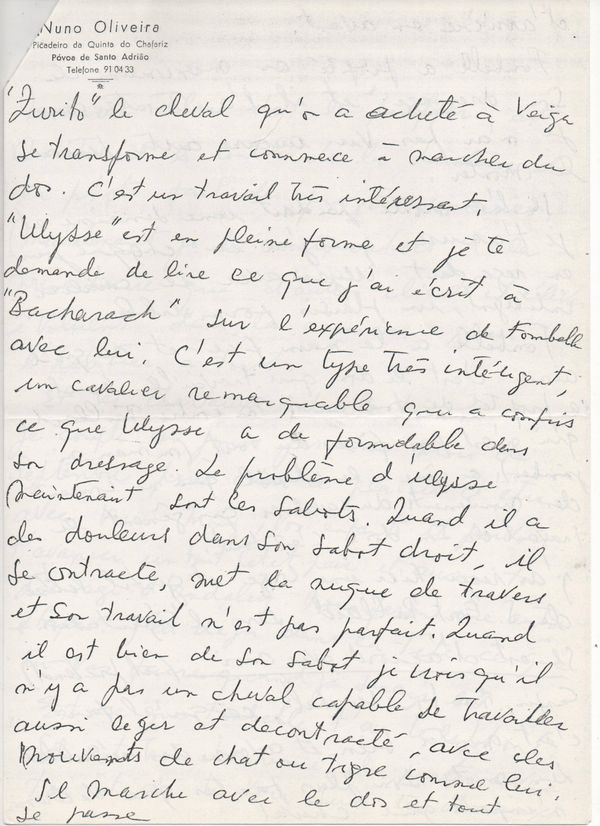 Nuno Oliveira
Picadeiro da Quinta do Chafariz
Póvoa de Santo Adrião
Telefone 91 04 33
"Zurito" le cheval qu'on a acheté à Veiga
se transforme et commence à marcher du
dos. C'est un travail très intéressant.
"Ulysse" est en pleine forme et je te
demande de lire ce que j'ai écrit à
"Bacharach" sur l'expérience de Tombelle
avec lui. C'est un type très intéligent,
un cavalier remarquable qui a compris
ce que Ulysse a de formidable dans
son dressage. Le problème d'Ulysse
maintenant sont les sabots. Quand il a
des douleurs dans son sabot droit, il
se contracte, met la nuque de travers
et son travail n'est pas parfait. Quand
il est bien de son sabot je crois qu'il
n'y a pas un cheval capable de travailler
aussi leger et decontracté, avec des
mouvements de chat ou tigre comme lui.
Il marche avec le dos et tout
se passe